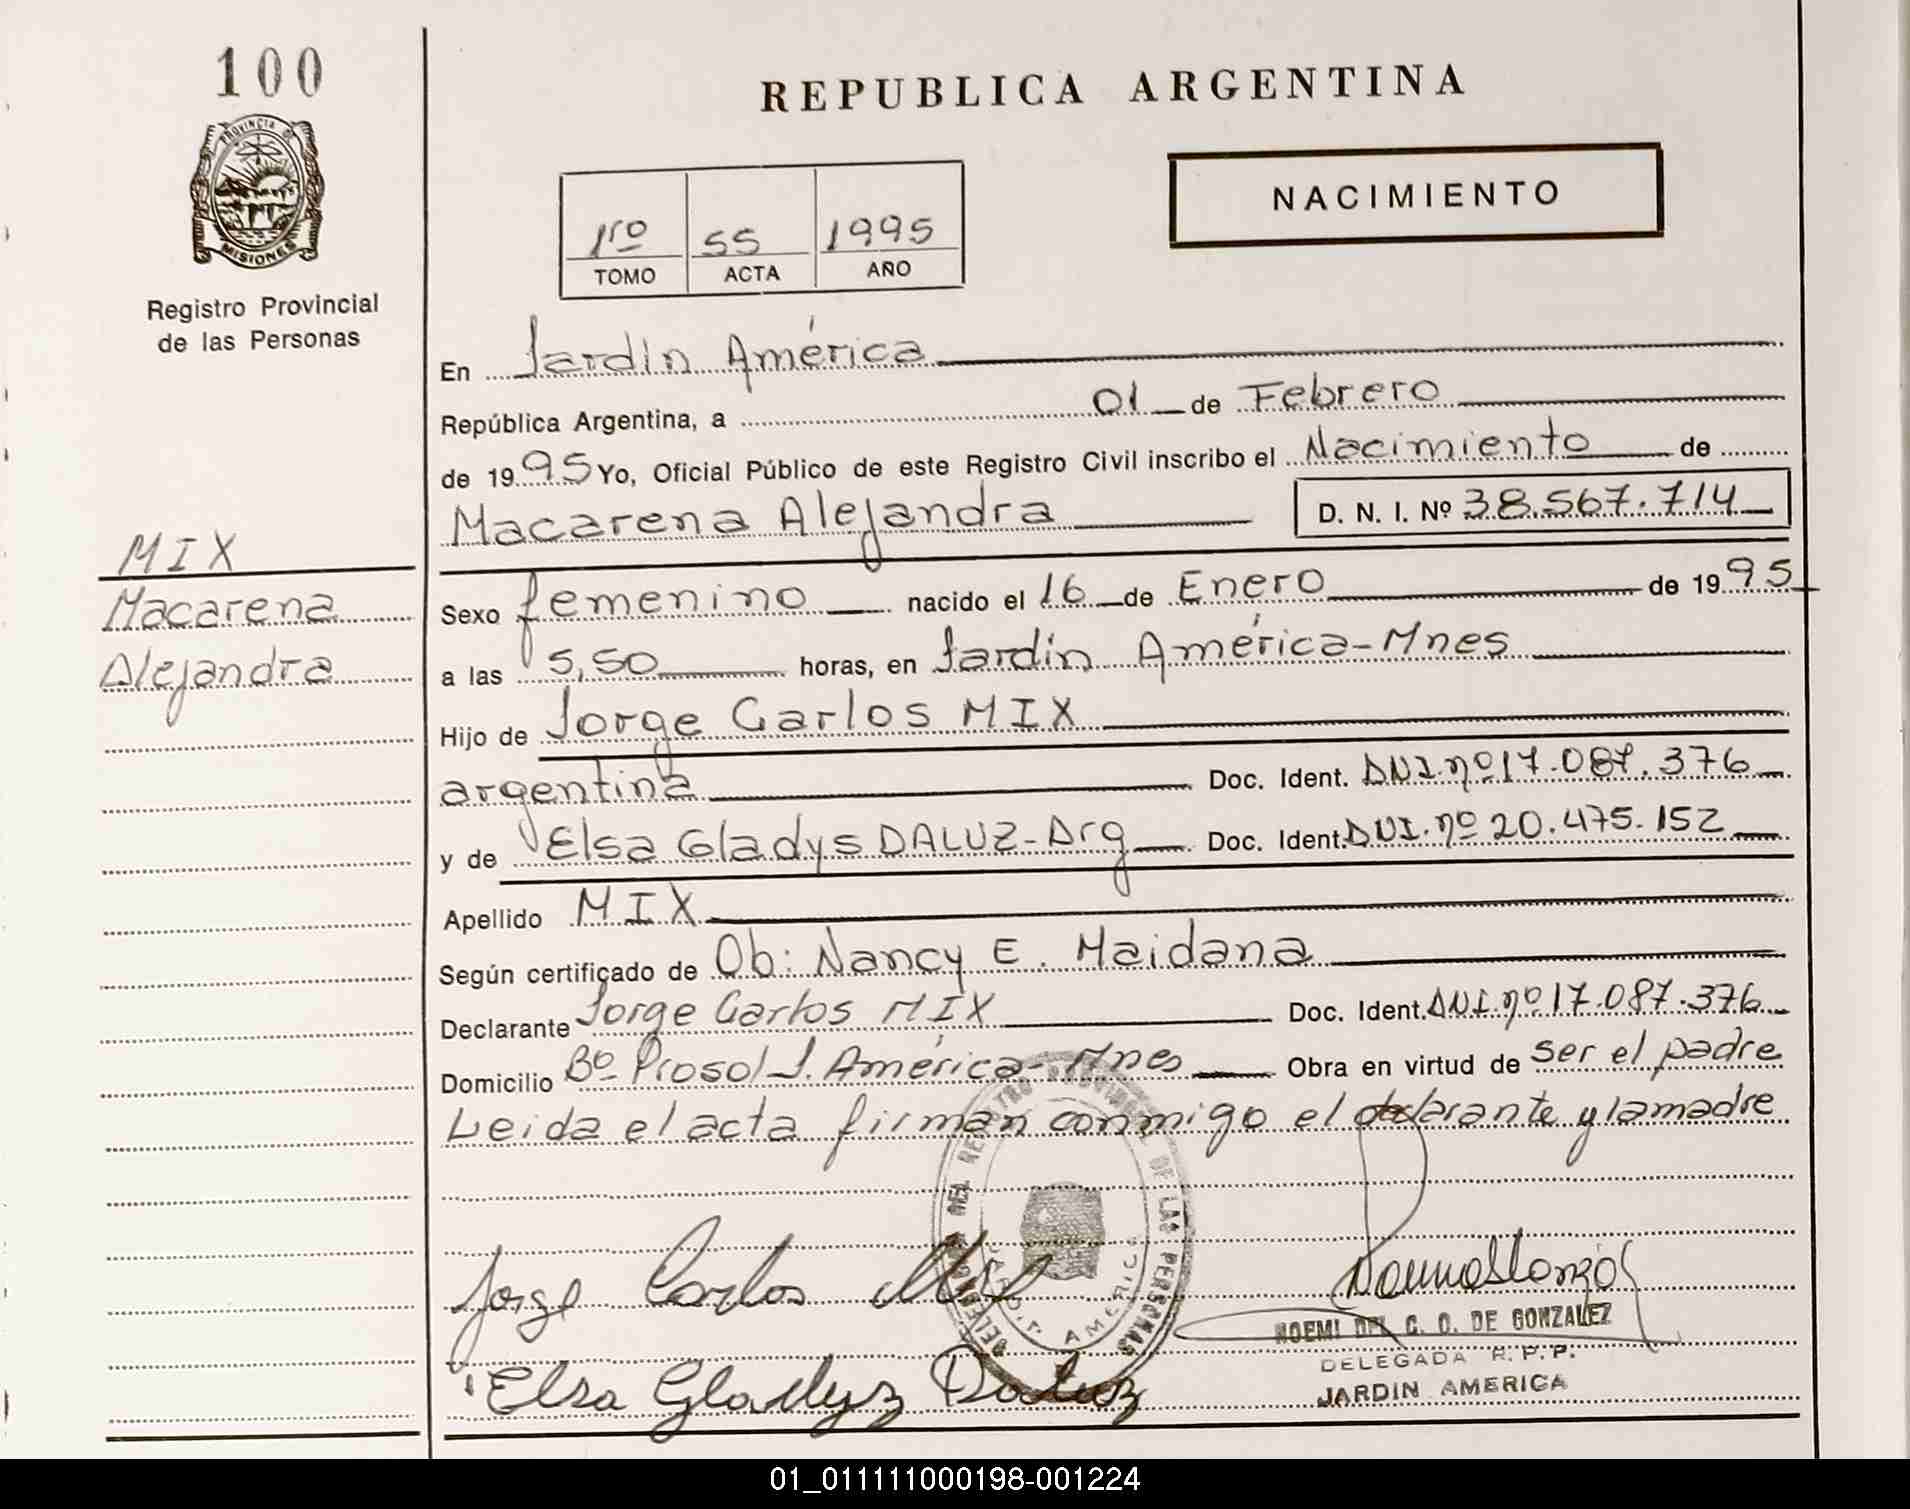 100
REPUBLICA ARGENTINA
PROVINCIA DE
MISIONES
Registro Provincial
de las Personas
NACIMIENTO
1ro 55 1995
TOMO ACTA AÑO
En Jardín América
República Argentina, a 01 de Febrero
de 1995 Yo, Oficial Público de este Registro Civil inscribo el Nacimiento de
Macarena Alejandra D. N. I. Nº 38.567.714
MIX
Macarena
Alejandra
Sexo femenino nacido el 16 de Enero de 1995
a las 5,50 horas, en Jardín América-Mnes
Hijo de Jorge Carlos MIX
argentina Doc. Ident. DNI.nº 17.087.376
y de Elsa Gladys DALUZ-Arg Doc. Ident. DNI.nº 20.475.152
Apellido MIX
Según certificado de Ob: Nancy E. Maidana
Declarante Jorge Carlos MIX Doc. Ident. DNI.nº 17.087.376
Domicilio Bº Prosol J. América-Mnes Obra en virtud de ser el padre
Leida el acta firman conmigo el declarante y la madre
DEL REGISTRO PROVINCIAL DE LAS PERSONAS
AMERICA
Jorge Carlos Mix
Elsa Gladyz Daluz
NOEMI DEL C. O. DE GONZALEZ
DELEGADA R.P.P.
JARDIN AMERICA
01_011111000198-001224